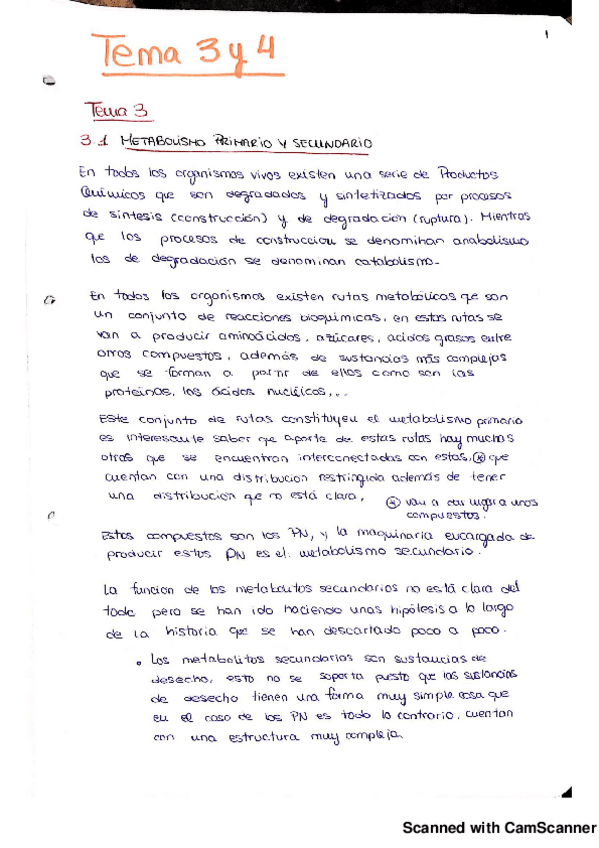 1
Tema 3 y 4
Tema 3
3.1 METABOLISMO PRIMARIO Y SECUNDARIO
En todos los organismos vivos existen una serie de Productos
Químicos que son degradados y sintetizados por procesos
de síntesis (construcción) y de degradación (ruptura). Mientras
que los procesos de construccion se denominan anabolismo
los de degradación se denominan catabolismo.
En todos los organismos existen rutas metabólicas qe son
un conjunto de reacciones bioquimicas, en estas rutas se
van a producir aminoácidos, azúcares, acidos grasos entre
otros compuestos, además de sustancias más complejas
que se forman a partir de ellos como son las
proteinas, los ácidos nucleícos,...
Este conjunto de rutas constituyen el metabolismo primario
es interesante saber que aparte de estas rutas hay muchos
otras que se encuentran interconectadas con estas, ⊛ que
cuentan con una distribucion restringida además de tener
una distribucion que no está clara, ⊛ van a dar lugar a unos
compuestos.
Estos compuestos son los PN, y la maquinaria encargada de
producir estos PN es el: metabolismo secundario.
La funcion de los metabolitos secundarios no está clara del
todo pero se han ido haciendo unas hipótesis a lo largo
de la historia que se han descartado poco a poco.
• Los metabolitos secundarios son sustancias de
desecho, esto no se soporta puesto que las sustancias
de desecho tienen una forma muy simple cosa que
en el caso de los PN es todo lo contrario, cuentan
con una estructura muy compleja.
Scanned with CamScanner